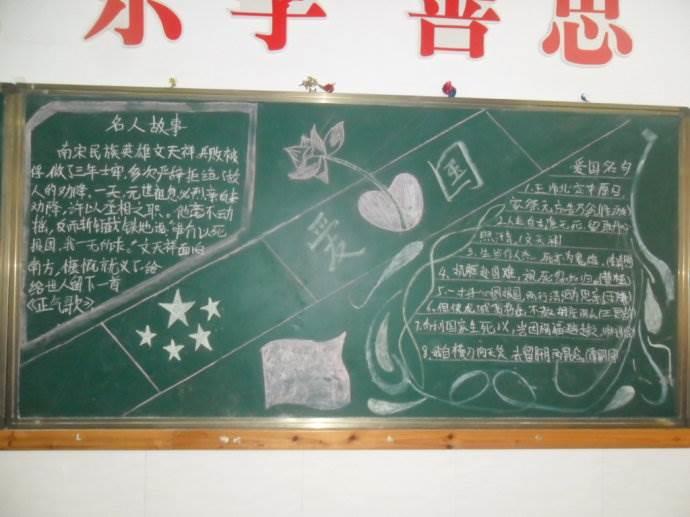 乐学善思
名人故事
南宋民族英雄文天祥,兵败被
俘,做了三年土牢,多次严辞拒绝了敌
人的劝降。一天,元世祖忽必烈亲自来
劝降,许以丞相之职。他毫不动
摇,反而斩钉截铁地说:"唯有以死
报国,我一无所求。"文天祥面向
南方,慷慨就义了给
给世人留下一首
《正气歌》
爱国
爱国名句
1.王师北定中原日,
家祭无忘告乃翁
2.人生自古谁无死,留取丹心
照汗青(文天祥)
3.生当作人杰,死亦为鬼雄
4.捐躯赴国难,视死忽如归。
5.一寸丹心
6.但使龙城飞将在,不教胡马
7.苟利国家生死以,岂因祸福避趋之
8.我自横刀向天笑,去留肝胆两昆仑